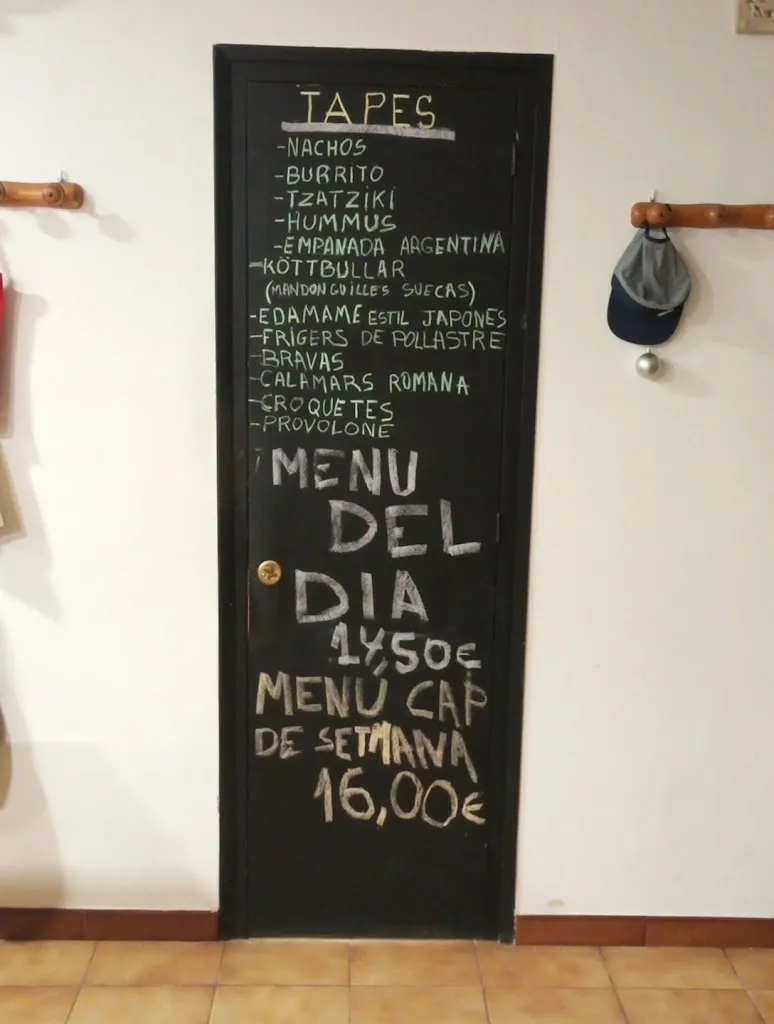 TAPES
-NACHOS
-BURRITO
-TZATZIKI
-HUMMUS
-EMPANADA ARGENTINA
-KÖTTBULLAR
(MANDONGUILLES SUECAS)
-EDAMAME ESTIL JAPONES
-FRIGERS DE POLLASTRE
-BRAVAS
-CALAMARS ROMANA
-CROQUETES
-PROVOLONE
MENU
DEL
DIA
14,50€
MENÚ CAP
DE SETMANA
16,00€